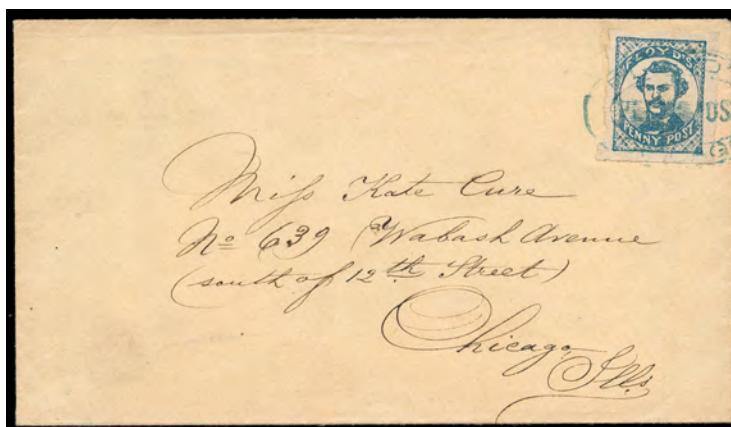 FLOYD'S
PENNY POST
Miss Kate Cure
No 639 Wabash Avenue
(south of 12th Street)
Chicago,
Ills